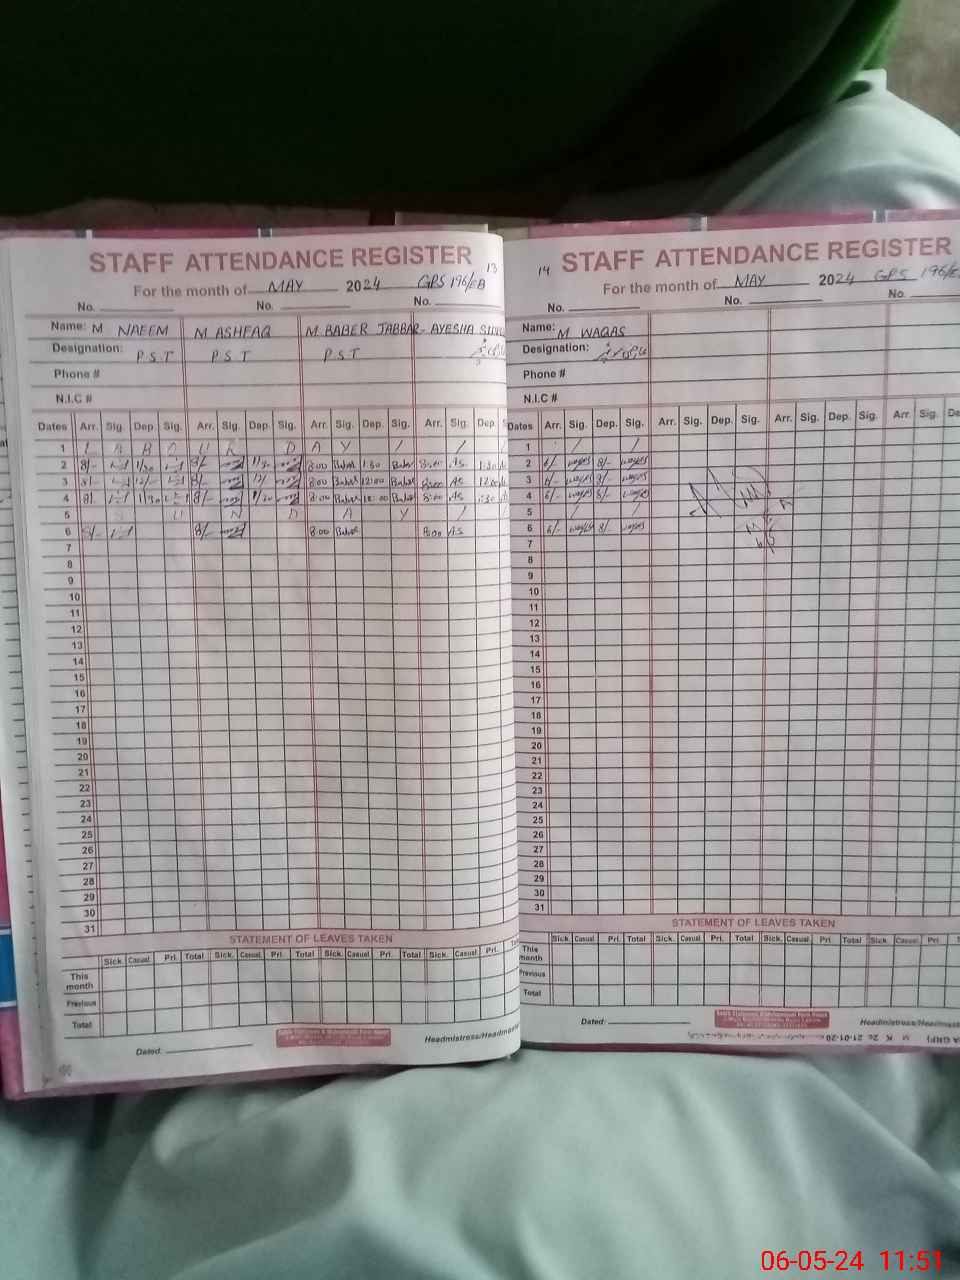 STAFF ATTENDANCE REGISTER
13
For the month of MAY 2024 GPS 196/EB
No. No. No.
Name: M NAEEM M ASHFAQ M. BABER JABBAR AYESHA
Designation: P S T P S T P S T
Phone #
N.I.C #
Dates Arr. Sig. Dep. Sig. Arr. Sig. Dep. Sig. Arr. Sig. Dep. Sig. Arr. Sig. Dep.
1 L A B O U R D A Y / /
2 8/- 1/30 8/- 1/30 8:00 Baber 1:30 Baber 8:00 AS 1:30
3 8/- 12/- 8/- 12/- 8:00 Baber 12:00 Baber 8:00 AS
4 8/- 8/- 8:00 Baber Baber 8:00 AS
5 S U N D A Y /
6 8/- 8/- 8:00 Baber 8:00 AS
7
8
9
10
11
12
13
14
15
16
17
18
19
20
21
22
23
24
25
26
27
28
29
30
31
STATEMENT OF LEAVES TAKEN
Sick. Casual. Pri. Total Sick. Casual. Pri. Total Sick. Casual Pri. Total Sick. Casual. Pri.
This month
Previous
Total
Dated:
Headmistress/Headm
14
STAFF ATTENDANCE REGISTER
For the month of MAY 2024 GPS 196/E
No. No. No.
Name: M WAQAS
Designation:
Phone #
N.I.C #
Dates Arr. Sig. Dep. Sig. Arr. Sig. Dep. Sig. Arr. Sig. Dep. Sig. Arr. Sig. De
1 / /
2 waqas 8/- waqas
3 waqas 8/- waqas
4 waqas 8/- waqas
5 / /
6 waqas 8/- waqas
7
8
9
10
11
12
13
14
15
16
17
18
19
20
21
22
23
24
25
26
27
28
29
30
31
STATEMENT OF LEAVES TAKEN
Sick. Casual. Pri. Total Sick. Casual Pri. Total Sick. Casual. Pri. Total Sick. Casual. Pri.
This month
Previous
Total
Dated:
Headmistress/Headmist
06-05-24 11:51